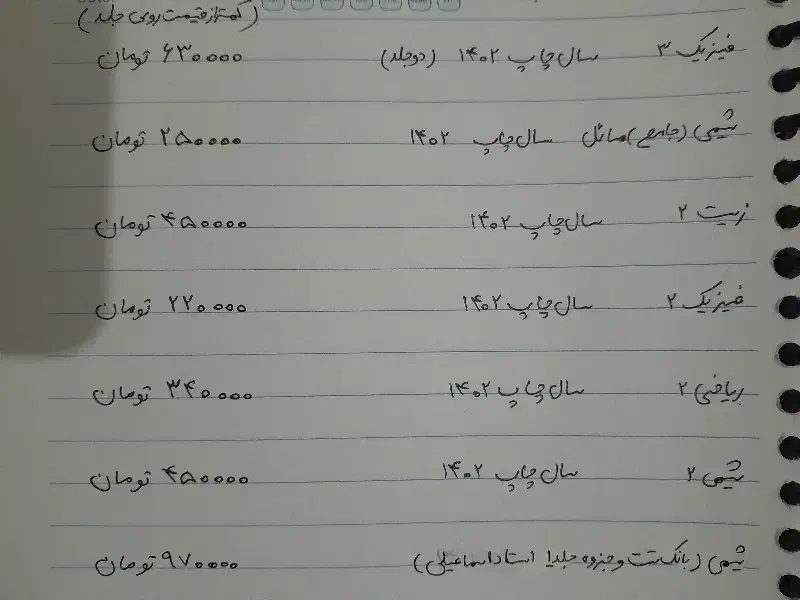 (کمتر از قیمت روی جلد)
فیزیک ۳ سال چاپ ۱۴۰۲ (دو جلد) ۶۳۰۰۰۰ تومان
شیمی (جامع) مسائل سال چاپ ۱۴۰۲ ۲۵۰۰۰۰ تومان
زیست ۲ سال چاپ ۱۴۰۲ ۴۵۰۰۰۰ تومان
فیزیک ۲ سال چاپ ۱۴۰۲ ۲۲۰۰۰۰ تومان
ریاضی ۲ سال چاپ ۱۴۰۲ ۳۴۰۰۰۰ تومان
شیمی ۲ سال چاپ ۱۴۰۲ ۴۵۰۰۰۰ تومان
شیمی (بانک تست و جزوه استاد اسماعیلی) ۹۷۰۰۰۰ تومان